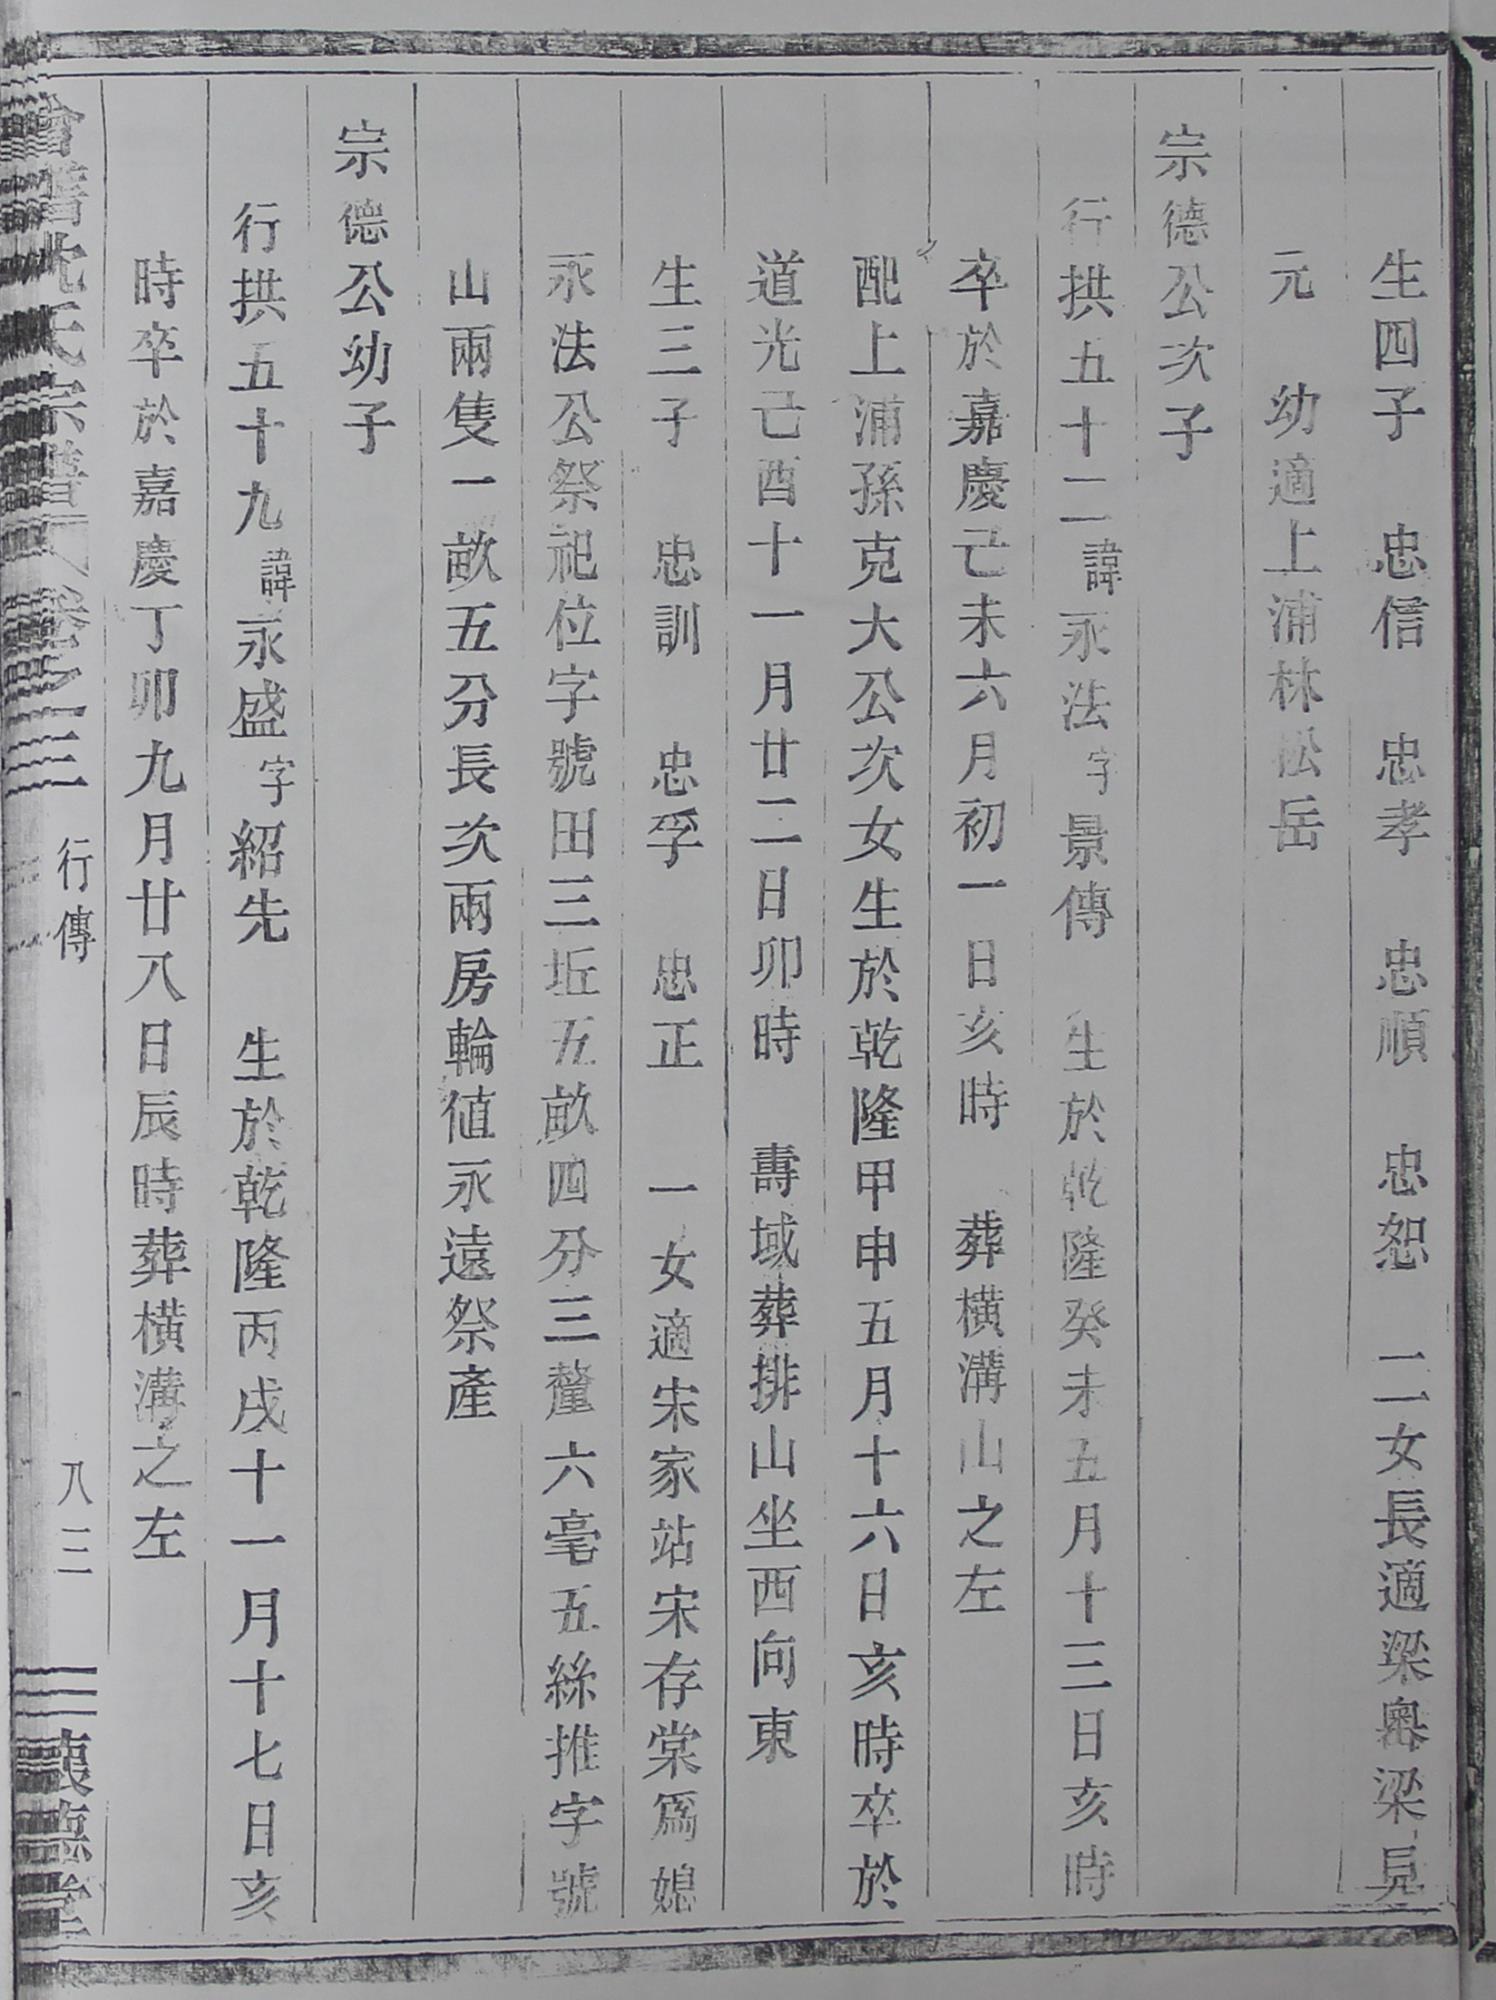 生四子 忠信 忠孝 忠順 忠恕 二女長適梁奧梁見
元 幼適上浦林松岳
宗德公次子
行拱五十二諱永法字景傳 生於乾隆癸未五月十三日亥時
卒於嘉慶己未六月初一日亥時 葬橫溝山之左
配上浦孫克大公次女生於乾隆甲申五月十六日亥時卒於
道光己酉十一月廿二日卯時 壽域葬排山坐西向東
生三子 忠訓 忠孚 忠正 一女適宋家站宋存棠爲媳
永法公祭祀位字號田三坵五畝四分三釐六毫五絲推字號
山兩隻一畝五分長次兩房輪值永遠祭產
宗德公幼子
行拱五十九諱永盛字紹先 生於乾隆丙戌十一月十七日亥
時卒於嘉慶丁卯九月廿八日辰時葬橫溝之左
沈氏宗譜 卷之三 行傳 八三 德堂